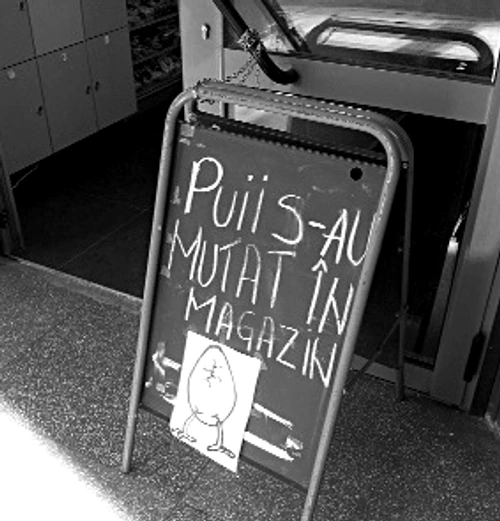 PUII S-AU
MUTAT ÎN
MAGAZIN